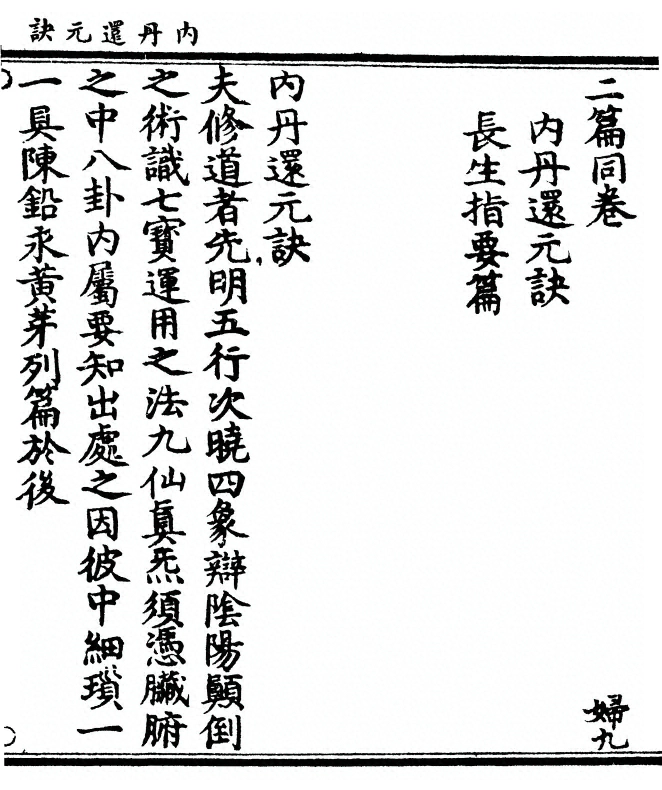 內丹還元訣
二篇同卷
婦九
內丹還元訣
長生指要篇
內丹還元訣
夫修道者先明五行次曉四象辯陰陽顚倒
之術識七寶運用之法九仙眞炁須憑臟腑
之中八卦內屬要知出處之因彼中細瑣一
一具陳鉛汞黃芽列篇於後